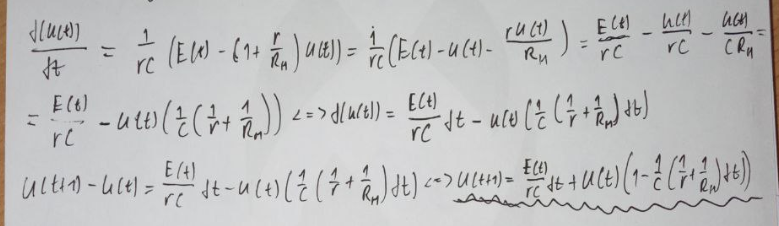 d(u(t))/dt = 1/rC (E(t) - (1 + r/R_H) u(t)) = 1/rC (E(t) - u(t) - ru(t)/R_H) = E(t)/rC - u(t)/rC - u(t)/CR_H =
= E(t)/rC - u(t) (1/C (1/r + 1/R_H)) <=> d(u(t)) = E(t)/rC dt - u(t) (1/C (1/r + 1/R_H) dt)
u(t+1) - u(t) = E(t)/rC dt - u(t) (1/C (1/r + 1/R_H) dt) <=> u(t+1) = E(t)/rC dt + u(t) (1 - 1/C (1/r + 1/R_H) dt))